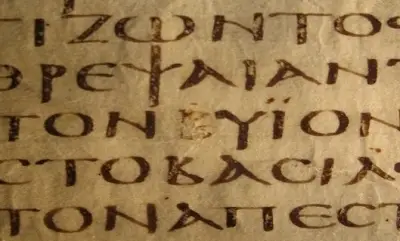 ΤΙΖΩΝΤΟϹ
ΘΡΕΨΑΙΑΝΤ
ΤΟΝ ΥΪΟΝ
ϹΤΟΒΑϹΙΛ
ΤΟΝΑΠΕϹΤ